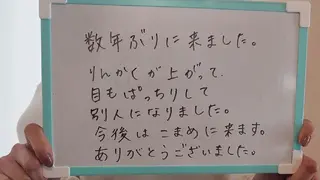 数年ぶりに来ました。
りんかくが上がって、
目もぱっちりして
別人になりました。
今後はこまめに来ます。
ありがとうございました。